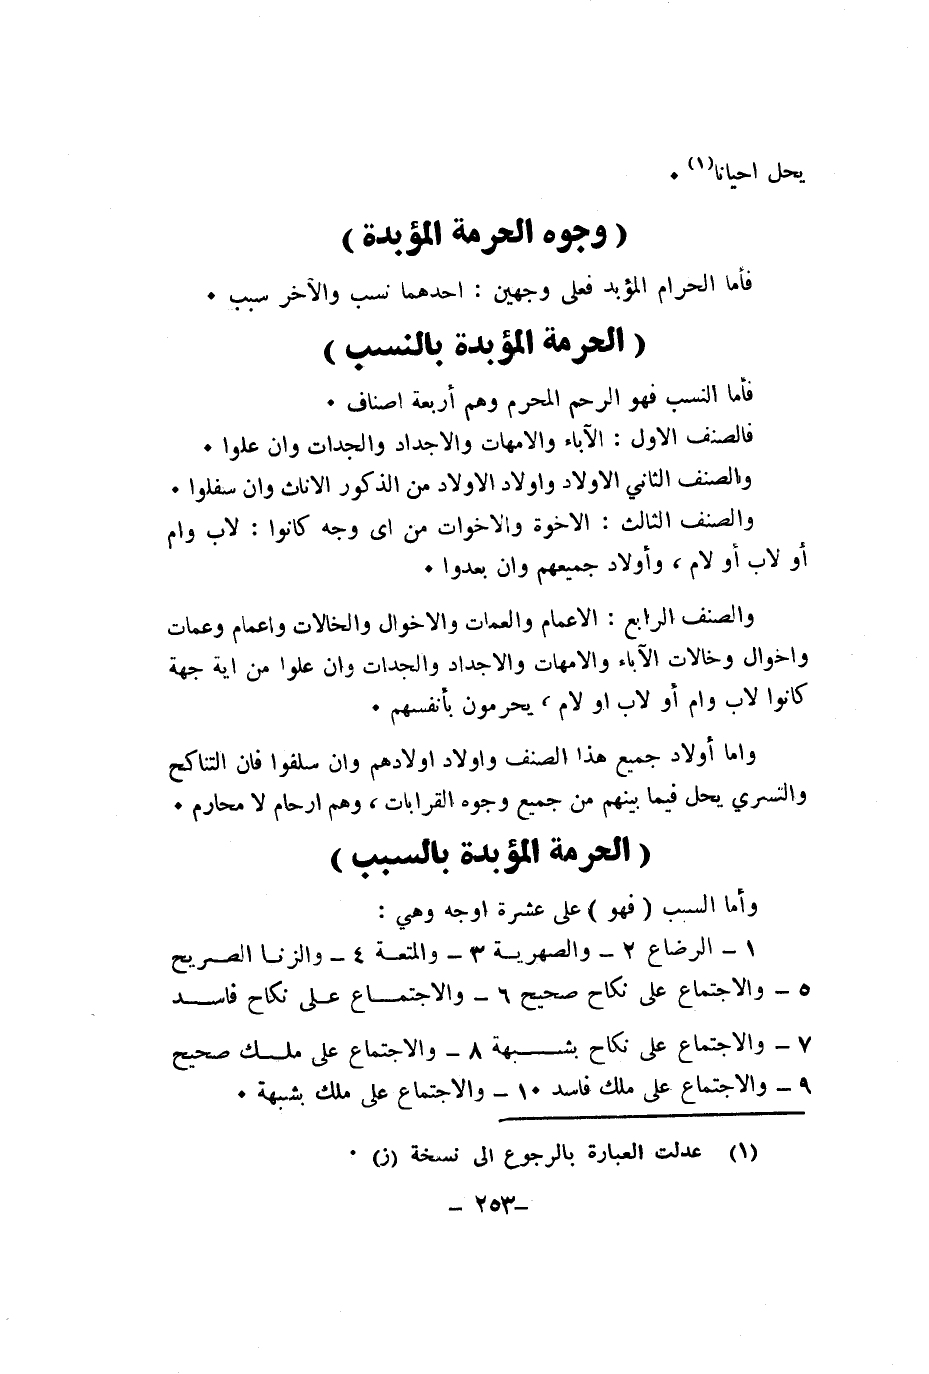 يحل احيانا(١) ٠
( وجوه الحرمة المؤبدة )
فأما الحرام المؤبد فعلى وجهين : احدهما نسب والآخر سبب ٠
( الحرمة المؤبدة بالنسب )
فأما النسب فهو الرحم المحرم وهم أربعة اصناف ٠
فالصنف الاول : الآباء والامهات والاجداد والجدات وان علوا ٠
والصنف الثاني الاولاد واولاد الاولاد من الذكور الاناث وان سفلوا ٠
والصنف الثالث : الاخوة والاخوات من اى وجه كانوا : لاب وام
أو لاب أو لام ، وأولاد جميعهم وان بعدوا ٠
والصنف الرابع : الاعمام والعمات والاخوال والخالات واعمام وعمات
واخوال وخالات الآباء والامهات والاجداد والجدات وان علوا من اية جهة
كانوا لاب وام أو لاب او لام ، يحرمون بأنفسهم ٠
واما أولاد جميع هذا الصنف واولاد اولادهم وان سلفوا فان التناكح
والتسري يحل فيما بينهم من جميع وجوه القرابات ، وهم ارحام لا محارم ٠
( الحرمة المؤبدة بالسبب )
وأما السبب ( فهو ) على عشرة اوجه وهي :
١ ـ الرضاع ٢ ـ والصهرية ٣ ـ والمتعة ٤ ـ والزنا الصريح
٥ ـ والاجتماع على نكاح صحيح ٦ ـ والاجتماع على نكاح فاسد
٧ ـ والاجتماع على نكاح بشبهة ٨ ـ والاجتماع على ملك صحيح
٩ ـ والاجتماع على ملك فاسد ١٠ ـ والاجتماع على ملك بشبهة ٠
(١) عدلت العبارة بالرجوع الى نسخة (ز) ٠
ـ ٢٥٣ ـ